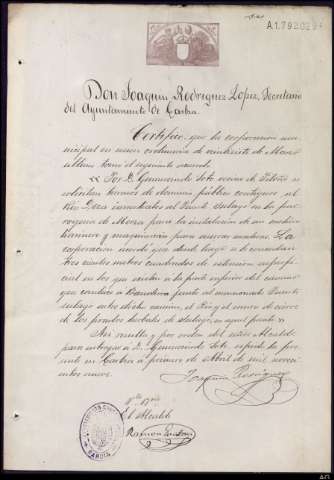 A.1.792.029
Don Joaquin Rodriguez Lopez, Secretario
del Ayuntamiento de Carbia.
Certifico: que la corporacion mu-
nicipal en sesion ordinaria de veintisiete de Marzo
último tomó el siguiente acuerdo.
Por D. Gumersindo Soto vecino de Filoira se
solicitan terrenos de dominio público contiguos al
Rio Deza inmediatos al Puente
para la instalacion de un molino
harinero y maquinaria para aserrar maderas. La
corporacion acordó que desde luego se le concedan
trescientos metros cuadrados de extension superfi-
cial en los que existen a la parte inferior del camino
que conduce á frente al mencionado Puente
entre dicho camino, el Rio y el muro de cierre
de los prados
Asi resulta y por orden del señor Alcalde
para entregar á D. Gumersindo Soto expido la pre-
sente en Carbia á primero de Abril de mil nove-
cientos nueve.
Joaquin Rodriguez
Vº Bº
El Alcalde
Ramon
CARBIA